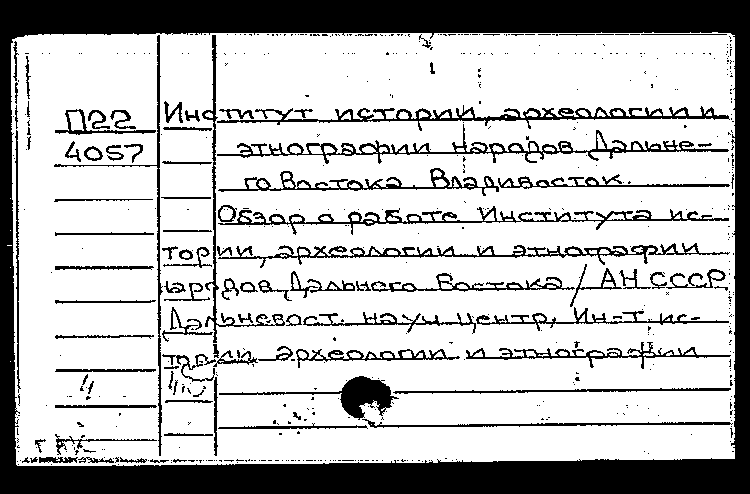 П22
4057
Институт истории, археологии и
этнографии народов Дальне-
го Востока. Владивосток.
Обзор о работе Института ис-
тории, археологии и этнографии
народов Дальнего Востока / АН СССР
Дальневост. науч центр, Ин-т ис-
тории археологии и этнографии
4